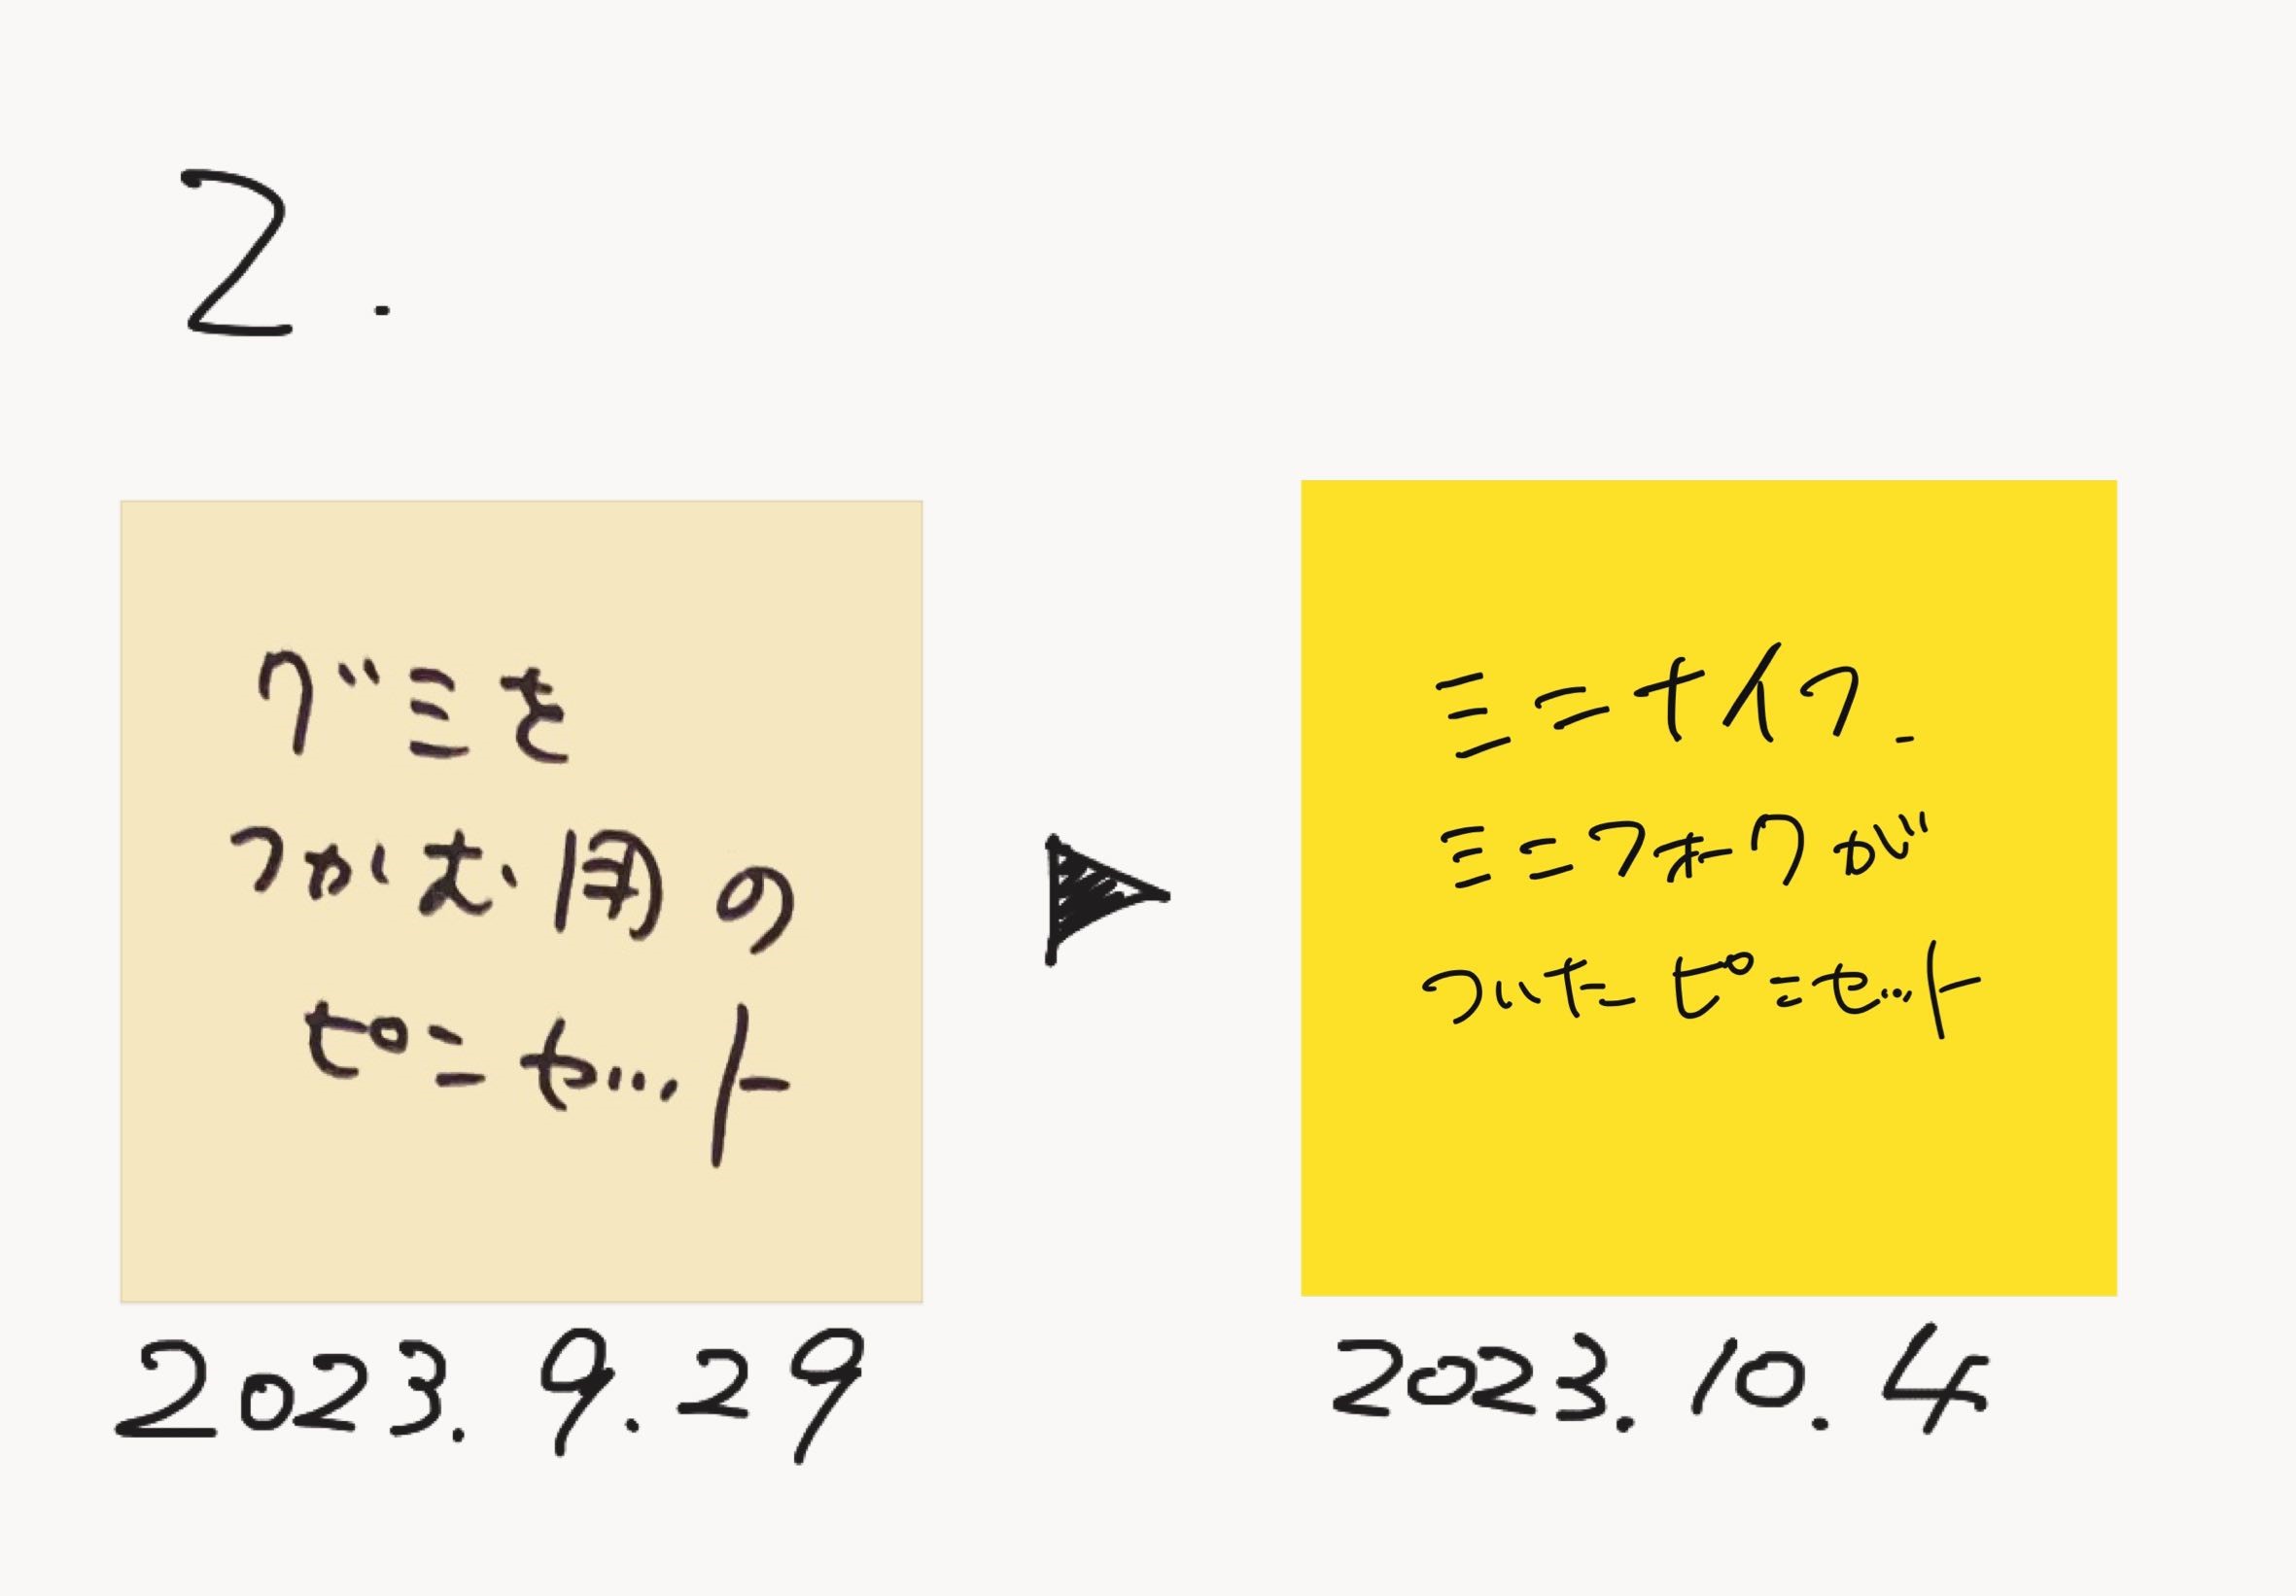 2.
グミを
つかむ用の
ピンセット
2023.9.29
ミニナイフ、
ミニフォークが
ついたピンセット
2023.10.4